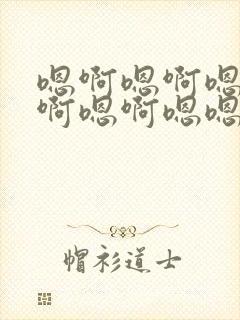 嗯啊嗯啊嗯
啊嗯啊嗯嗯
帽衫道士